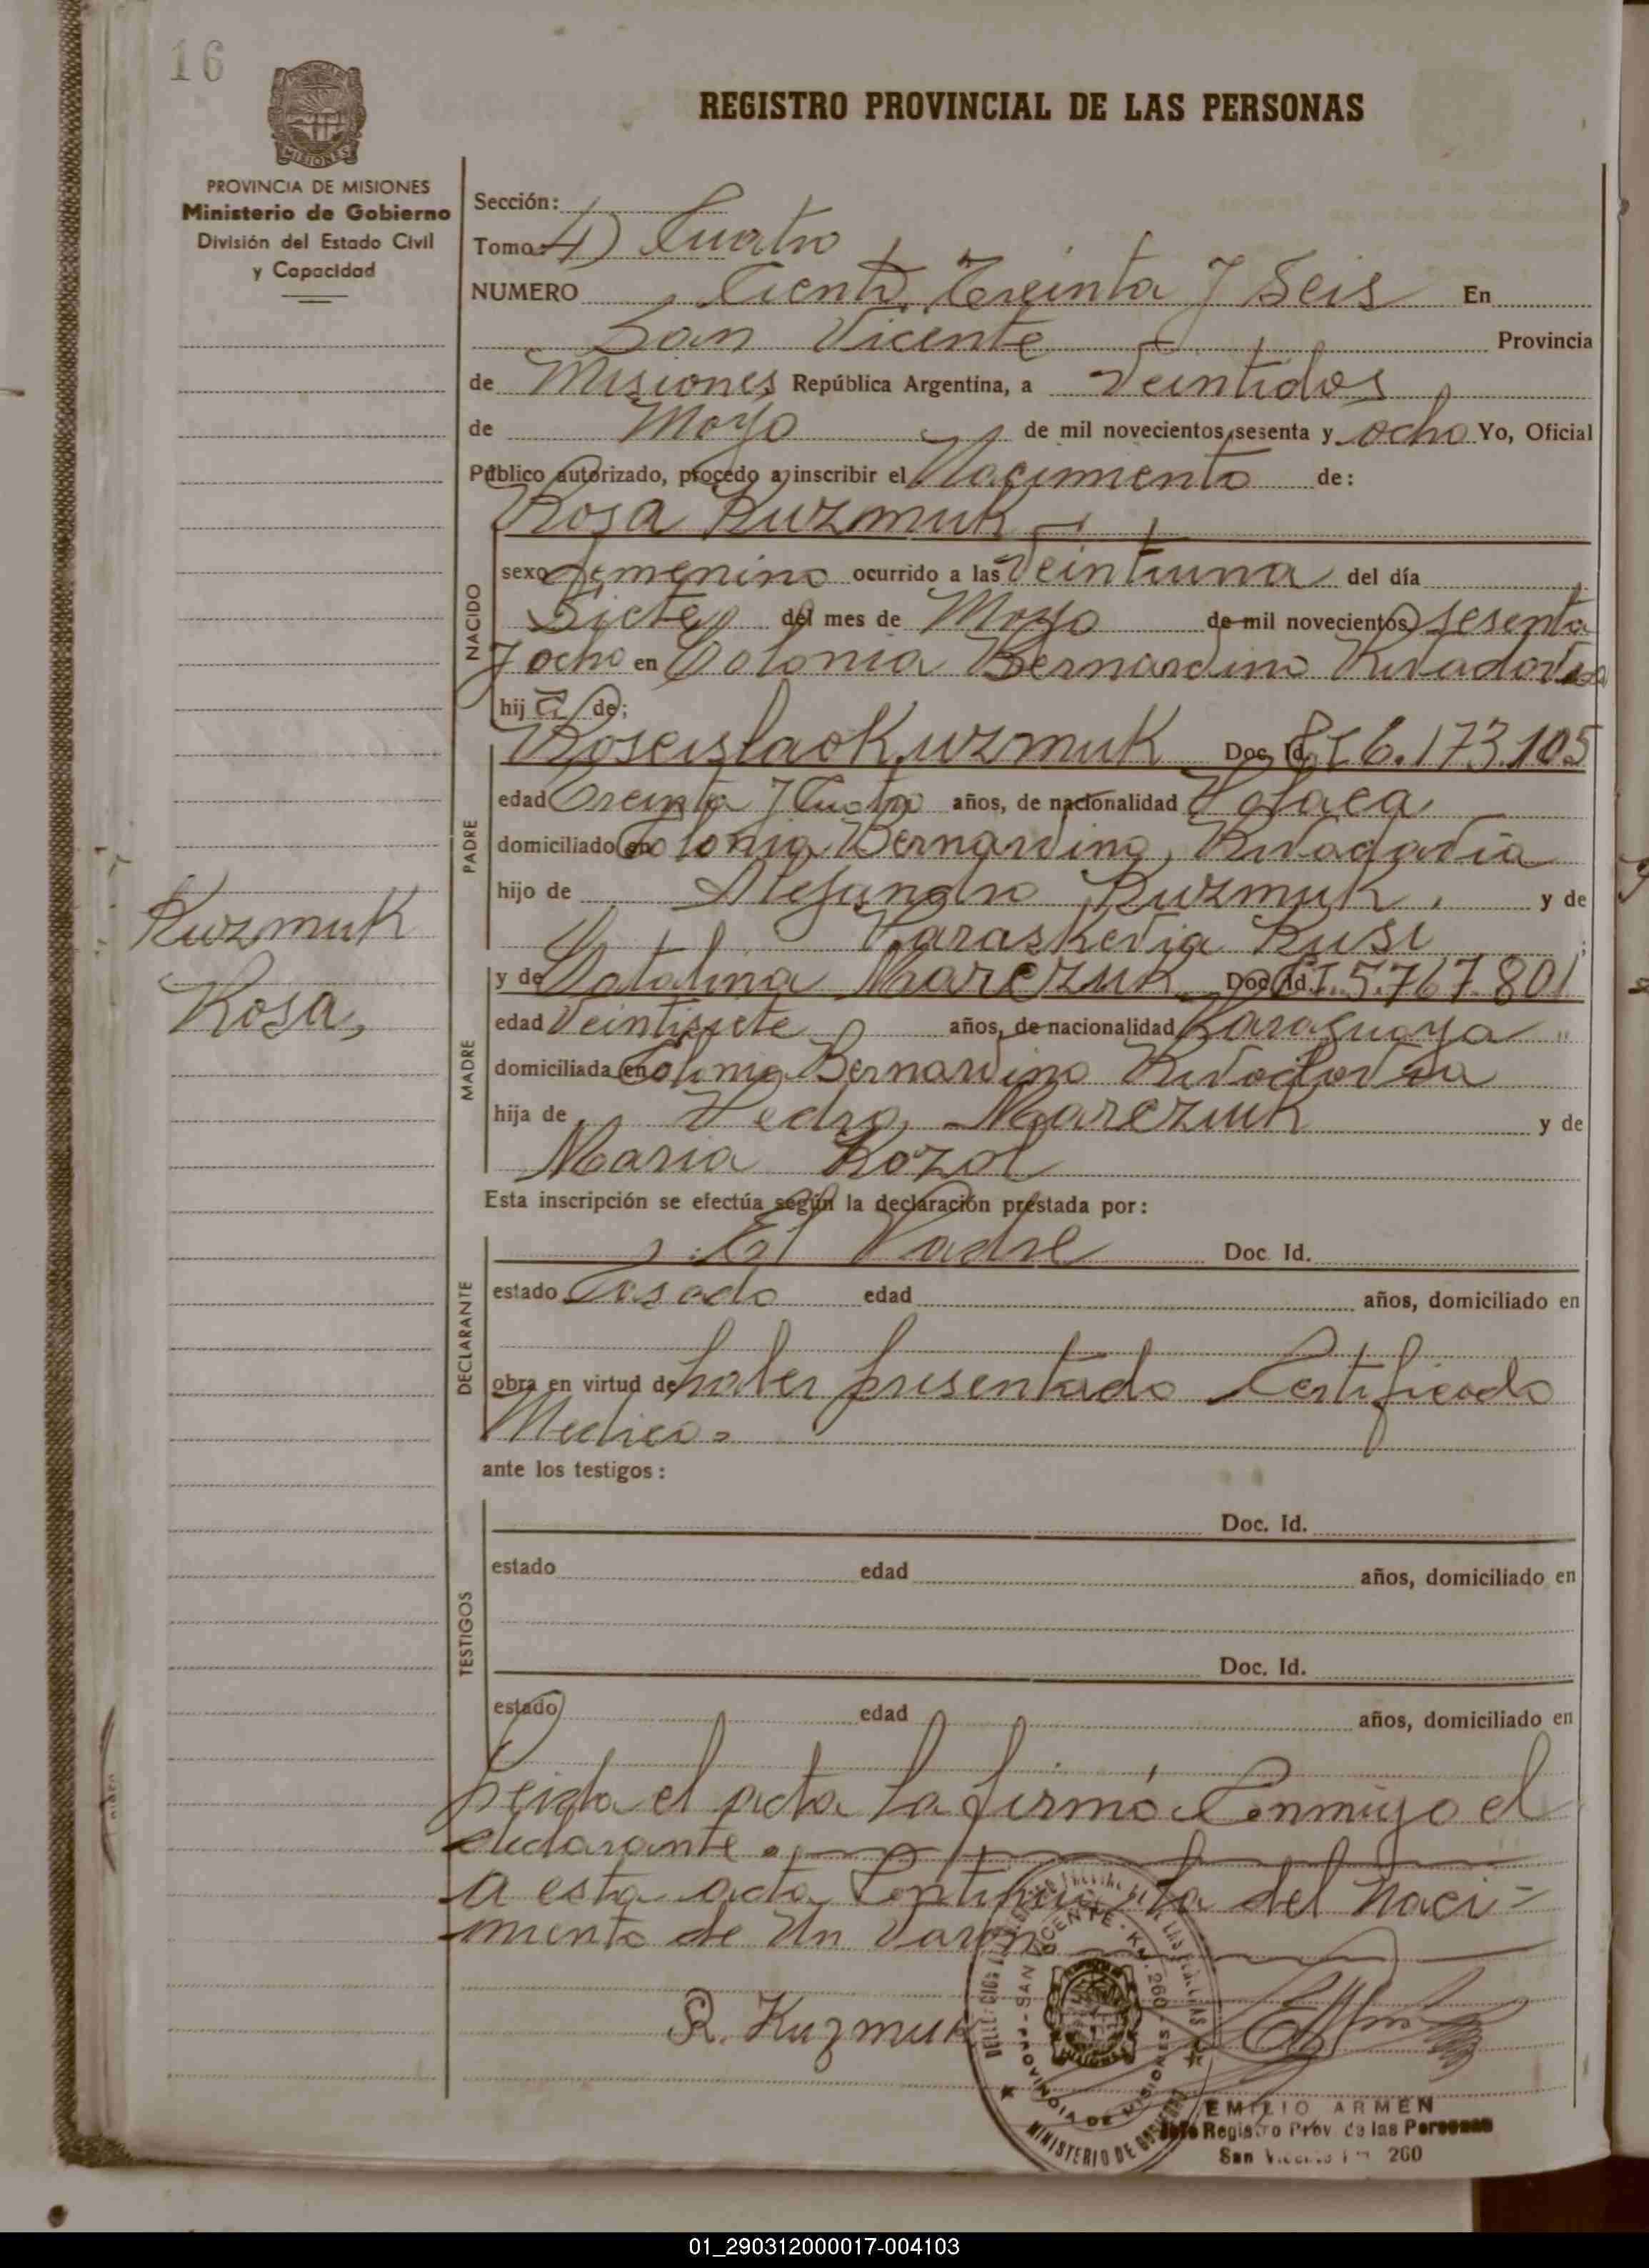 16
MISIONES
PROVINCIA DE MISIONES
Ministerio de Gobierno
División del Estado Civil
y Capacidad
REGISTRO PROVINCIAL DE LAS PERSONAS
Sección:
Tomo: 4) Cuatro
NUMERO Ciento Treinta y Seis En
San Vicente Provincia
de Misiones República Argentina, a Veintidos
de Mayo de mil novecientos sesenta y ocho Yo, Oficial
Público autorizado, procedo a inscribir el Nacimiento de:
Rosa Kuzmuk
NACIDO
sexo femenino ocurrido a las Veintiuna del día
Siete del mes de Mayo de mil novecientos sesenta
y ocho en Colonia Bernardino Rivadavia
hija de;
PADRE
Roseislao Kuzmuk Doc. Id. CI 6.173.105
edad Treinta y Cuatro años, de nacionalidad Polaca
domiciliado en Colonia Bernardino Rivadavia
hijo de Alejandro Kuzmuk y de
Paraskevia Kusi ;
Kuzmuk
Rosa,
MADRE
y de Catalina Marczuk Doc. Id. CI. 5.767.801
edad Veintisiete años, de nacionalidad Paraguaya
domiciliada en Colonia Bernardino Rivadavia
hija de Pedro Marczuk y de
Maria Kozol
Esta inscripción se efectúa según la declaración prestada por:
DECLARANTE
El Padre Doc. Id.
estado Casado edad años, domiciliado en
obra en virtud de haber presentado Certificado
Medico=
ante los testigos:
TESTIGOS
Doc. Id.
estado edad años, domiciliado en
Doc. Id.
estado edad años, domiciliado en
Leida el acta la firmó Conmigo el
declarante.
A esta acta del Naci=
miento de Un Varón
R. Kuzmuk
SAN VICENTE - KM. 260 - PROVINCIA DE MISIONES
MINISTERIO DE GOBIERNO
EMILIO ARMEN
Jefe Registro Prov. de las Personas
San Vicente Km 260
01_290312000017-004103